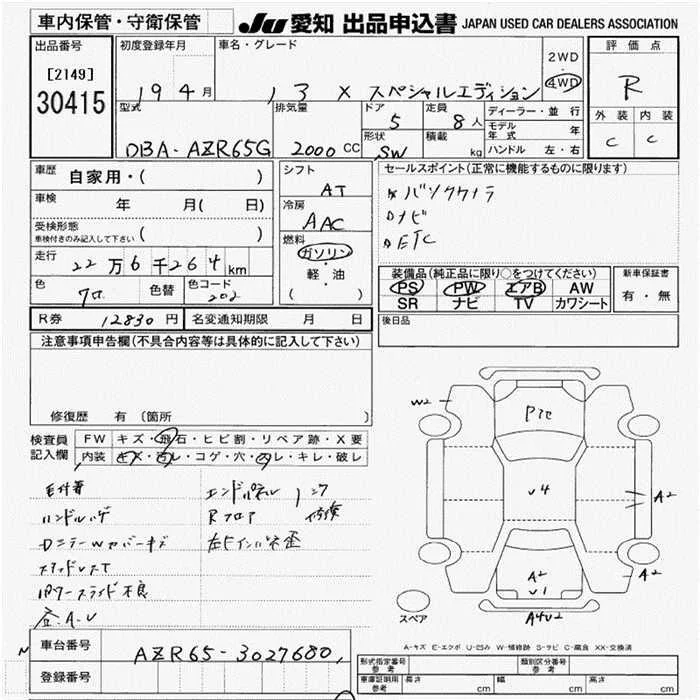 車内保管・守衛保管
JU 愛知 出品申込書 JAPAN USED CAR DEALERS ASSOCIATION
出品番号
[2149]
30415
初度登録年月
19 4 月
車名・グレード
X スペシャルエディション
2WD
4WD
評価点
R
外装 内装
C C
型式
DBA-AZR65G
排気量
2000 CC
ドア
5
定員
8 人
形状
SW
積載
kg
ディーラー・並行
モデル年式 年
ハンドル 左・右
車歴 自家用・( )
車検 年 月( 日)
受検形態
車検付きのみ記入して下さい ( )
走行 22 万 6 千 264 km
色 クロ 色替 色コード 202
シフト
AT
冷房
AAC
燃料
ガソリン
・
軽・油
( )
セールスポイント(正常に機能するものに限ります)
バックカメラ
ナビ
ETC
装備品(純正品に限り○をつけてください)
PS PW エアB AW
SR ナビ TV カワシート
新車保証書
有・無
R券 12830 円 名変通知期限 月 日
後日品
注意事項申告欄(不具合内容等は具体的に記入して下さい)
修復歴 有 (箇所 )
検査員記入欄
FW キズ・飛石・ヒビ割・リペア跡・X要
内装 キズ・汚レ・コゲ・穴・スレ・キレ・破レ
ハンドルハゲ
エンドパネル
Rフロア 修換
パワースライド不良
W2
P
U4
A2
A2
A2
U1
A4U2
スペア
A-キズ E-エクボ U-凹み W-補修跡 S-サビ C-腐食 XX-交換済
車台番号 AZR65-3027680
登録番号
形式指定番号 参考
類別区分番号 参考
車庫証明用 参考 長さ cm 幅 cm 高さ cm